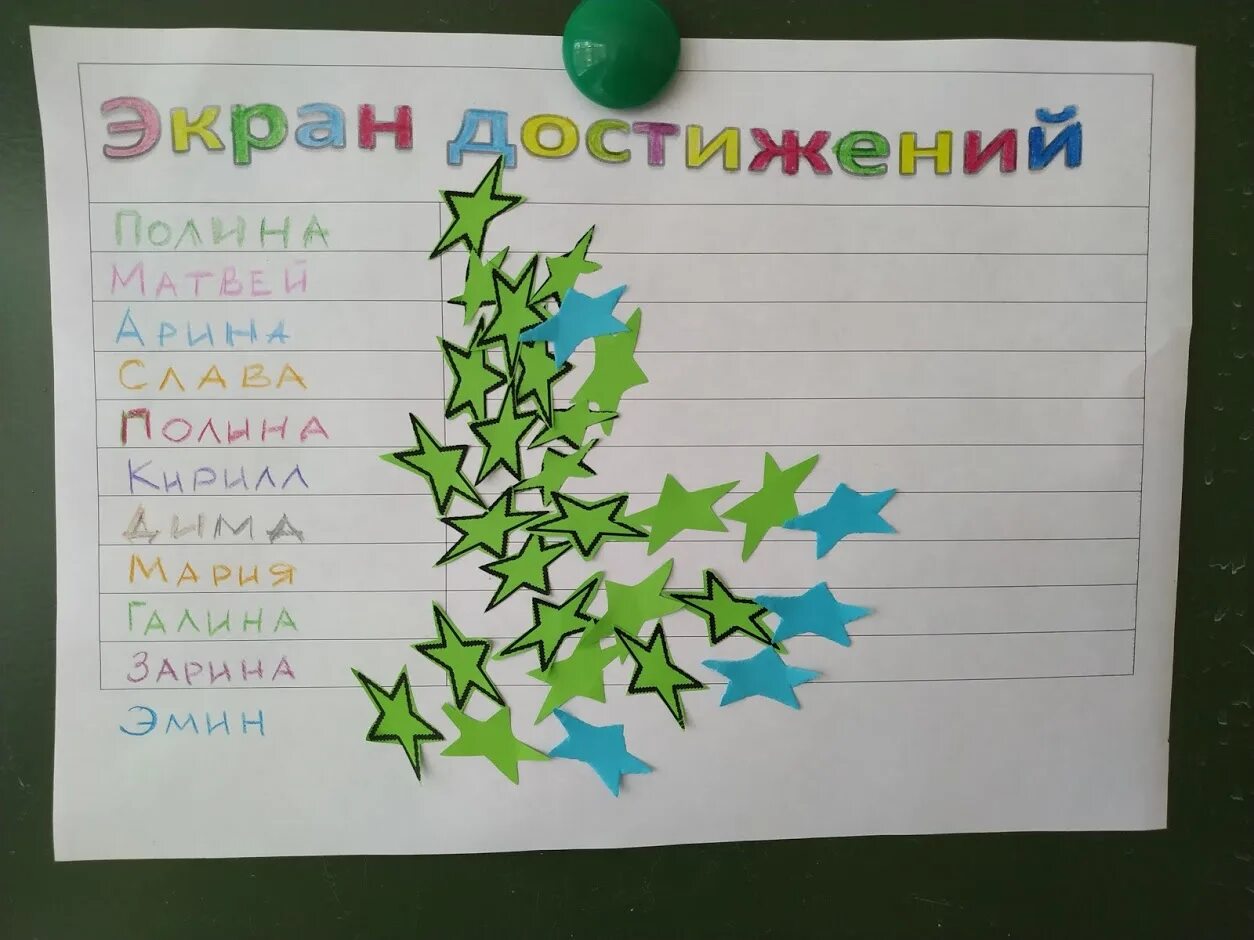 Экран достижений
Полина
Матвей
Арина
Слава
Полина
Кирилл
Дима
Мария
Галина
Зарина
Эмин